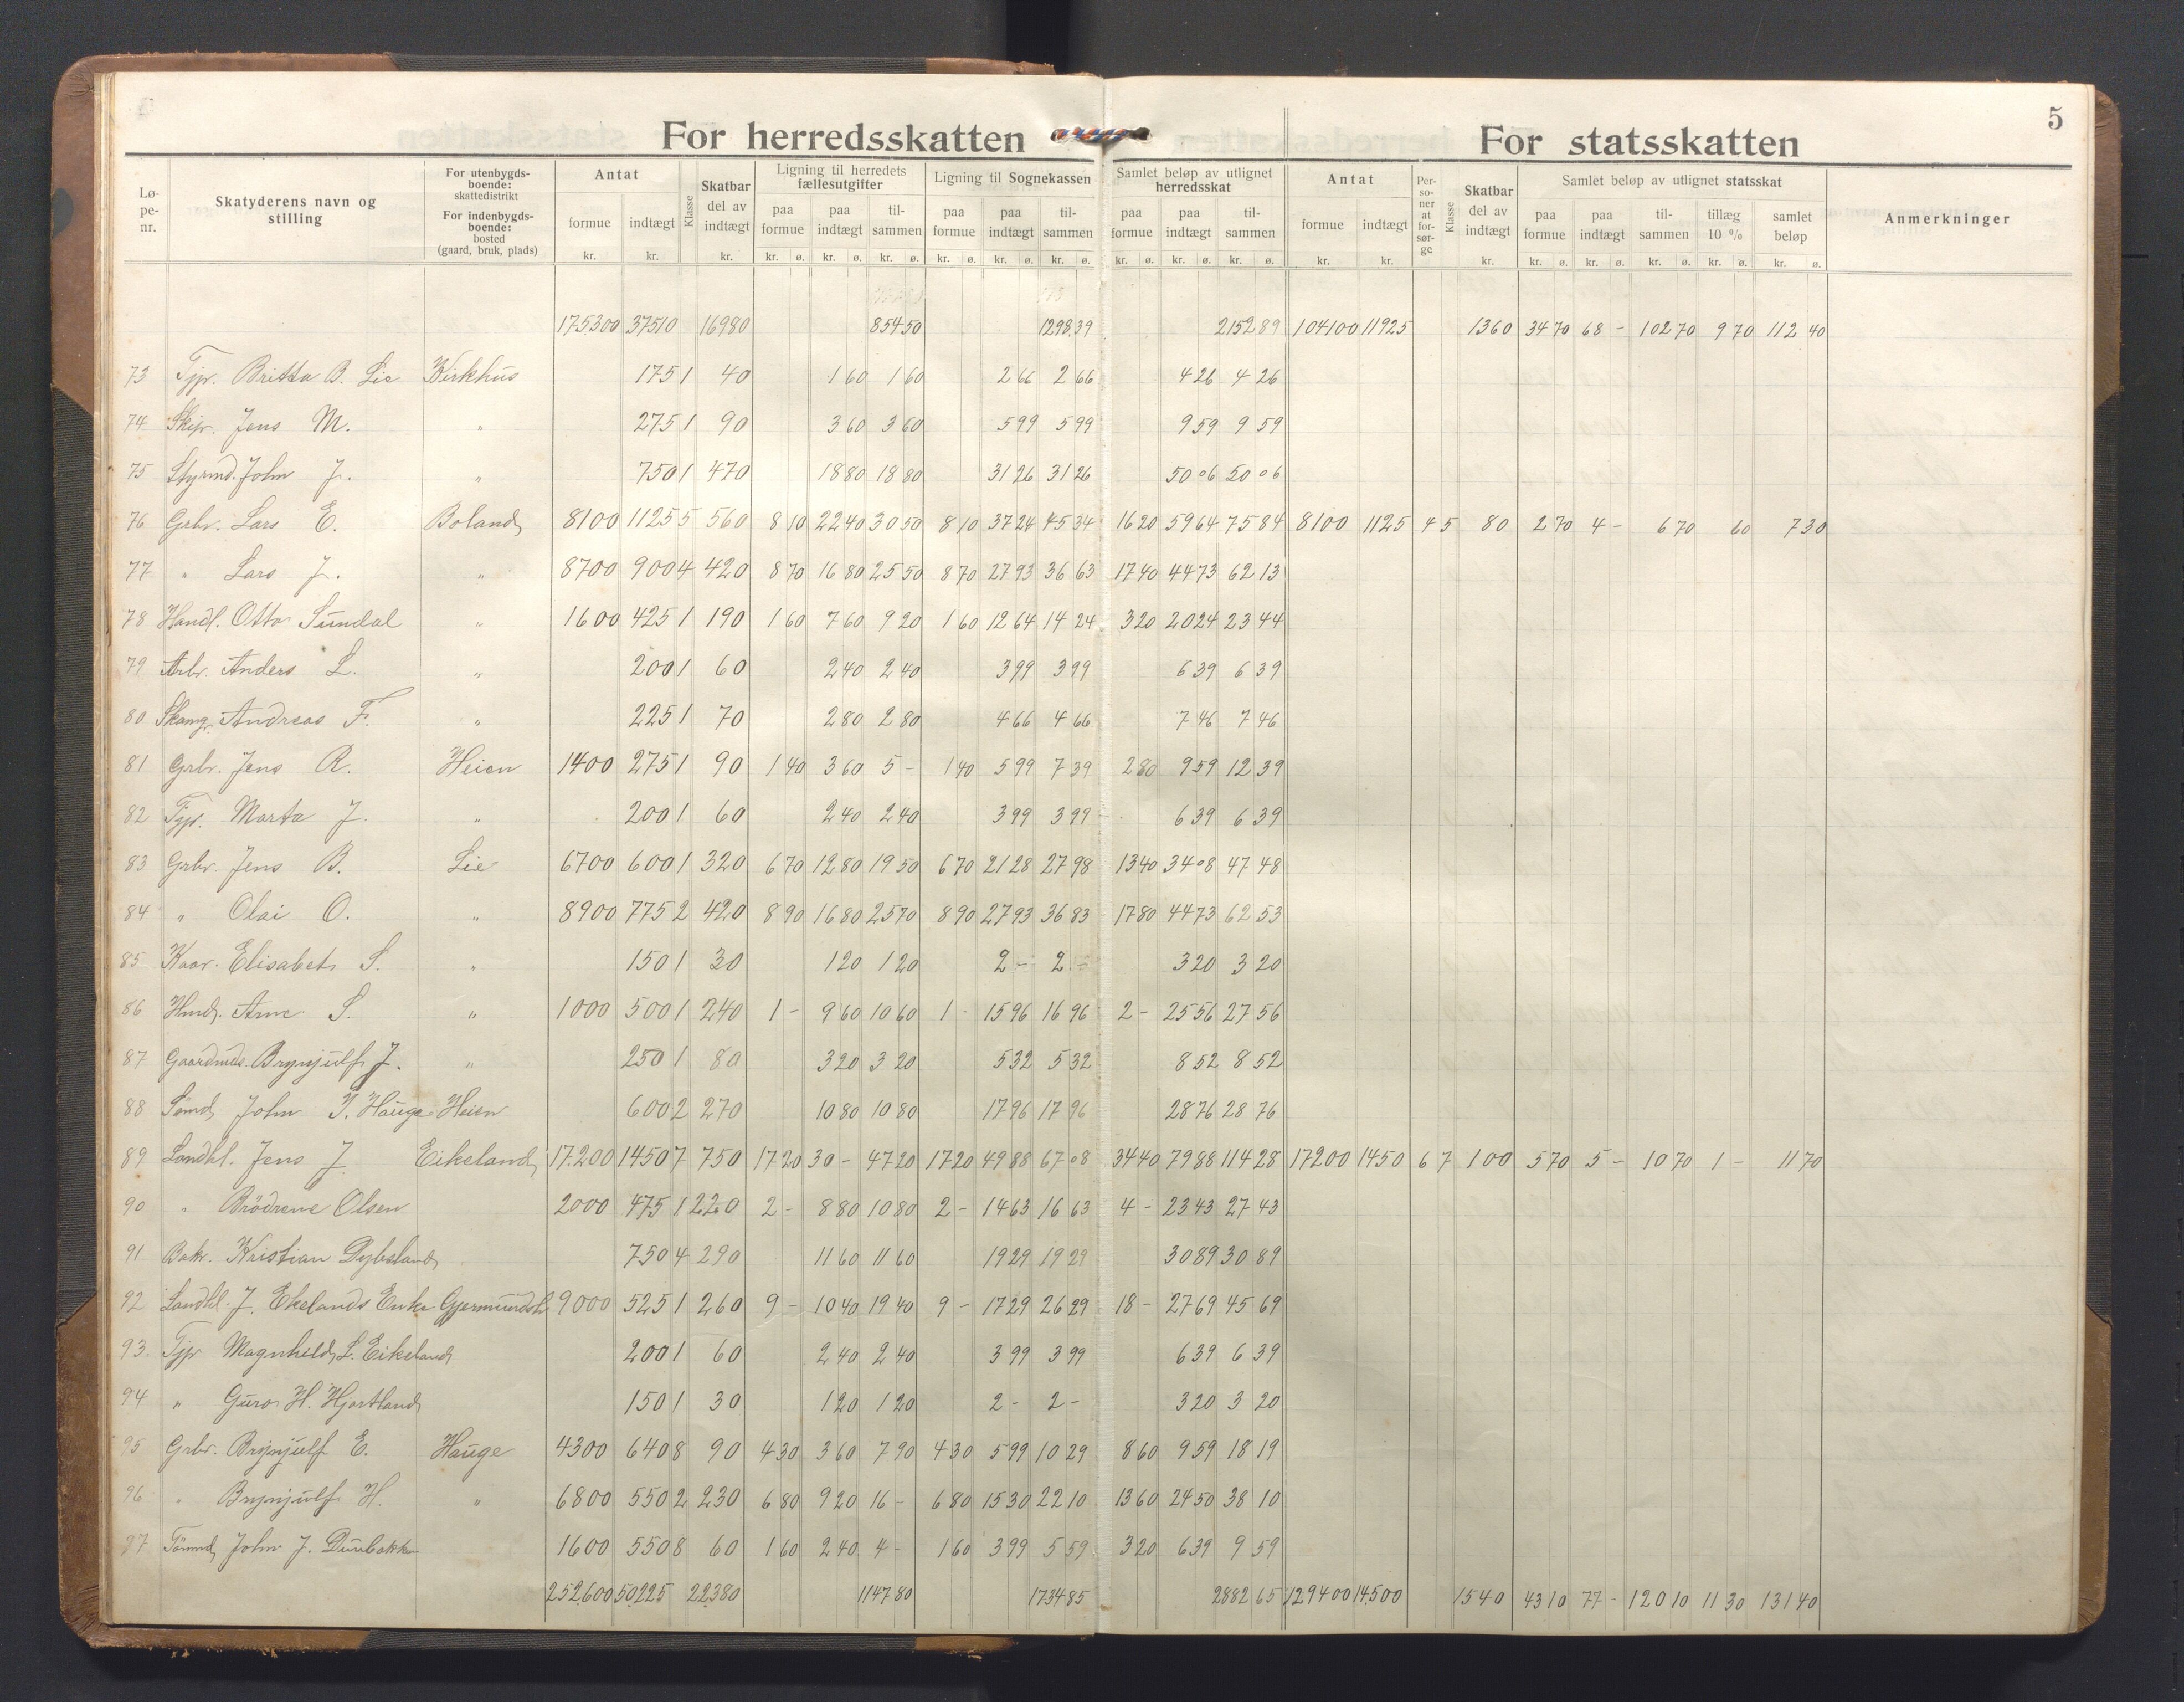 5
For herredsskatten For statsskatten
Lø-pe-nr. Skatyderens navn og stilling For utenbygds-boende: skattedistrikt For indenbygds-boende: bosted (gaard, bruk, plads) Antat formue kr. indtægt kr. Klasse Skatbar del av indtægt kr. Ligning til herredets fællesutgifter paa formue kr. ø. paa indtægt kr. ø. til-sammen kr. ø. Ligning til Sognekassen paa formue kr. ø. paa indtægt kr. ø. til-sammen kr. ø. Samlet beløp av utlignet herredsskat paa formue kr. ø. paa indtægt kr. ø. til-sammen kr. ø. Antat formue kr. indtægt kr. Per-so-ner at for-sør-ge Klasse Skatbar del av indtægt kr. Samlet beløp av utlignet statsskat paa formue kr. ø. paa indtægt kr. ø. til-sammen kr. ø. tillæg 10 % kr. ø. samlet beløp kr. ø. Anmerkninger
175300 37510 16980 854 50 1298.39 2152 89 104100 11925 1360 34 70 68 - 102 70 9 70 112 40
73 Tjp. Britta B. Lie Kirkhus 175 1 40 1 60 1 60 2 66 2 66 4 26 4 26
74 Skip. Jens M. " 275 1 90 3 60 3 60 5 99 5 99 9 59 9 59
75 Styrmd. John J. " 750 1 470 18 80 18 80 31 26 31 26 50 06 50 06
76 Grbr. Lars E. Boland 8100 1125 5 560 8 10 22 40 30 50 8 10 37 24 45 34 16 20 59 64 75 84 8100 1125 4 5 80 2 70 4 - 6 70 60 7 30
77 " Lars J. " 8700 900 4 420 8 70 16 80 25 50 8 70 27 93 36 63 17 40 44 73 62 13
78 Handl. Otto Sundal " 1600 425 1 190 1 60 7 60 9 20 1 60 12 64 14 24 3 20 20 24 23 44
79 Arb. Anders L. " 200 1 60 2 40 2 40 3 99 3 99 6 39 6 39
80 Skomg. Andreas F. " 225 1 70 2 80 2 80 4 66 4 66 7 46 7 46
81 Grbr. Jens R. Heien 1400 275 1 90 1 40 3 60 5 - 1 40 5 99 7 39 2 80 9 59 12 39
82 Tjp. Marta J. " 200 1 60 2 40 2 40 3 99 3 99 6 39 6 39
83 Grbr. Jens B. Lie 6700 600 1 320 6 70 12 80 19 50 6 70 21 28 27 98 13 40 34 08 47 48
84 " Olai O. " 8900 775 2 420 8 90 16 80 25 70 8 90 27 93 36 83 17 80 44 73 62 53
85 Kaar. Elisabet S. " 150 1 30 1 20 1 20 2 - 2 - 3 20 3 20
86 Hmd. Arne S. " 1000 500 1 240 1 - 9 60 10 60 1 - 15 96 16 96 2 - 25 56 27 56
87 Brynjulf J. " 250 1 80 3 20 3 20 5 32 5 32 8 52 8 52
88 John Hauge Heien 600 2 270 10 80 10 80 17 96 17 96 28 76 28 76
89 Landhl. Jens J. Eikeland 17.200 1450 7 750 17 20 30 - 47 20 17 20 49 88 67 08 34 40 79 88 114 28 17200 1450 6 7 100 5 70 5 - 10 70 1 - 11 70
90 " Brödrene Olsen 2000 475 1 220 2 - 8 80 10 80 2 - 14 63 16 63 4 - 23 43 27 43
91 Bakr. Kristian Dybsland 750 4 290 11 60 11 60 19 29 19 29 30 89 30 89
92 Landhl. J. Ekelands Enke 9000 525 1 260 9 - 10 40 19 40 9 - 17 29 26 29 18 - 27 69 45 69
93. Tjp Magnhild L. Eikeland 200 1 60 2 40 2 40 3 99 3 99 6 39 6 39
94 " Guro H. Hjortland 150 1 30 1 20 1 20 2 - 2 - 3 20 3 20
95 Grbr. Brynjulf E. Hauge 4300 640 8 90 4 30 3 60 7 90 4 30 5 99 10 29 8 60 9 59 18 19
96 " Brynjulf H. " 6800 550 2 230 6 80 9 20 16 - 6 80 15 30 22 10 13 60 24 50 38 10
97 Tömmd. John J. 1600 550 8 60 1 60 2 40 4 - 1 60 3 99 5 59 3 20 6 39 9 59
252.600 50,225 22380 1147 80 1734 85 2882 65 129400 14.500 1540 43 10 77 - 120 10 11 30 131 40